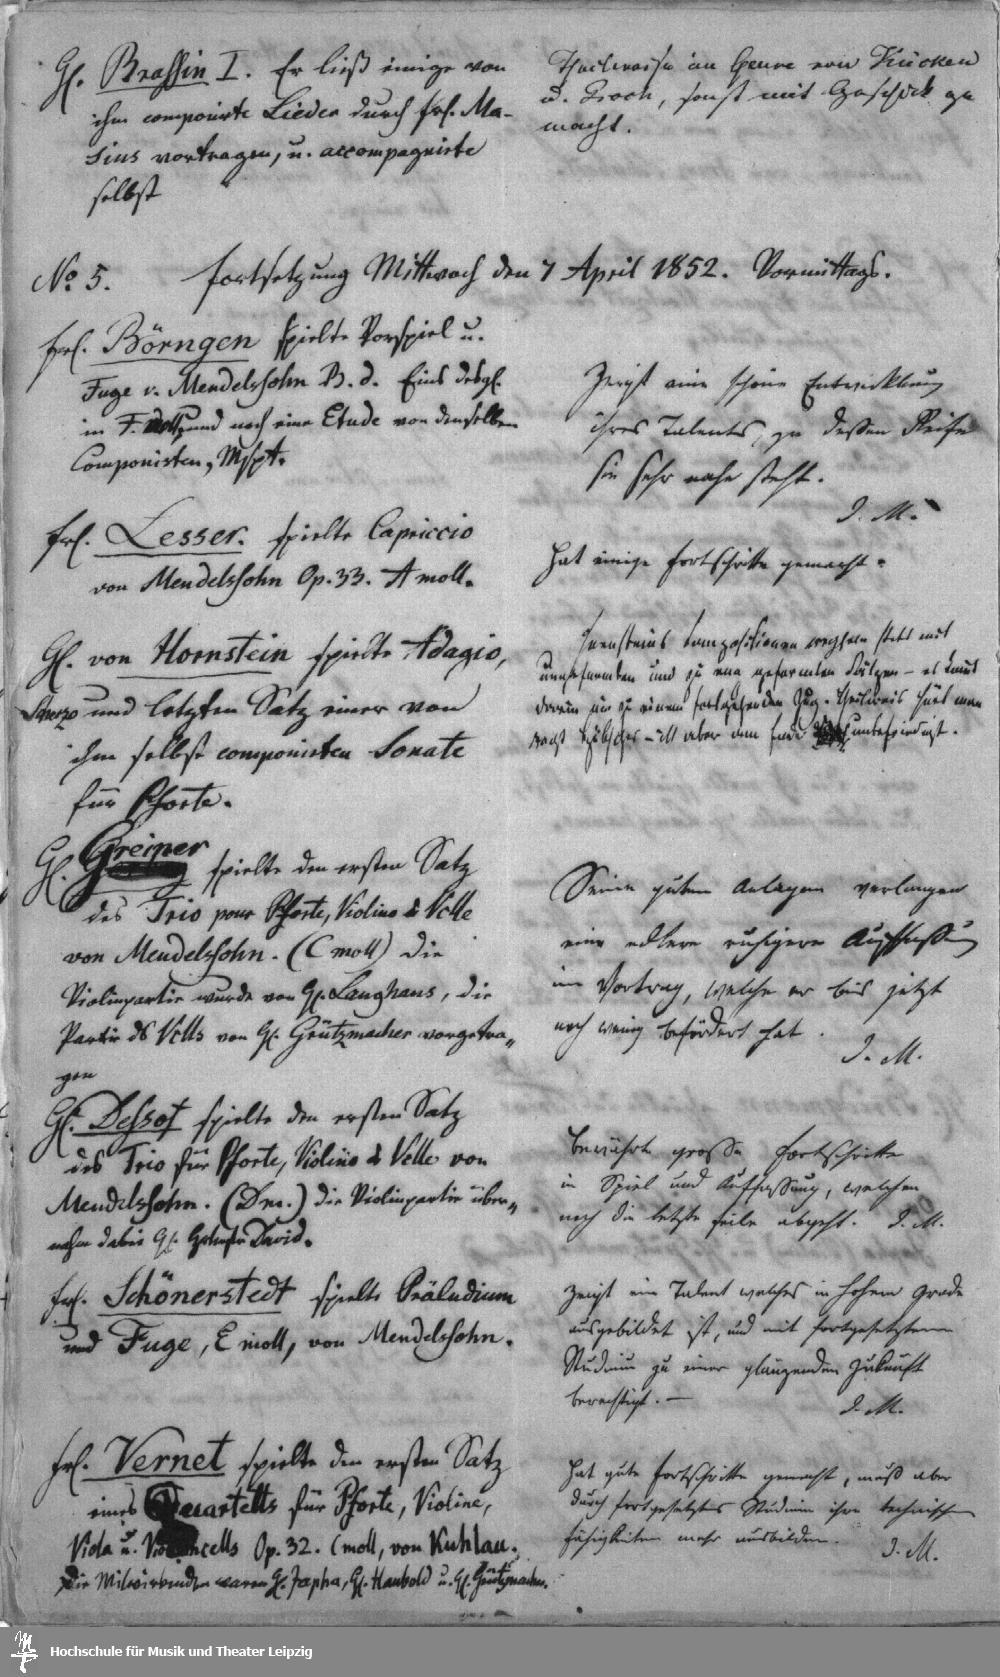 H. Brassin I. Er ließ einige von
ihm componirte Lieder durch Frl. Ma-
sius vortragen, u. accompagnirte
selbst
Theilweise im Genre von Kücken
u. Proch, sonst mit Geschick ge
macht.
No 5. Fortsetzung Mittwoch den 7 April 1852. Vormittags.
Frl. Börngen spielte Vorspiel u.
Fuge v. Mendelssohn B. d. Eins desgl.
in F. und noch eine Etude von denselben
Componisten, Mspt.
Zeigt eine schöne Entwicklung
ihres Talents, zu dessen Reife
sie sehr nahe steht.
I. M.
Frl. Lesser. spielte Capriccio
von Mendelssohn Op. 33. A moll.
Hat einige Fortschritte gemacht.
H. von Hornstein spielte Adagio,
Scherzo und letzten Satz einer von
ihm selbst componirten Sonate
für Pforte.
Hornsteins Compositionen wechseln stets mit
und zu geformten – es kommt
darin nie zu einem fortgehenden Zug – theilweis hört man
recht hübsches – ist aber am Ende unbefriedigt.
H. Greiner spielte den ersten Satz
des Trio pour Pforte, Violino & Vclle
von Mendelssohn. (C moll) die
Violinpartie wurde von H. Langhans, die
Partie ds Vclls von H. Grützmacher vorgetra„
gen
Seine guten Anlagen verlangen
eine edlere ruhigere Auffassung
im Vortrag, welche er bis jetzt
noch wenig befördert hat.
I. M.
H. Dessof spielte den ersten Satz
des Trio für Pforte, Violino & Velle von
Mendelssohn. (Dm.) die Violinpartie über„
nahm dabei H. David.
Bewährte grosse Fortschritte
in Spiel und Auffassung, welchen
noch die letzte Feile abgeht. I. M.
Frl. Schönerstedt spielte Präludium
und Fuge, E moll, von Mendelssohn.
Zeigt ein Talent welches in hohem Grade
ausgebildet ist, und mit fortgesetztem
Studium zu einer glänzenden Zukunft
berechtigt. —
I. M.
Frl. Vernet spielte den ersten Satz
eines Quartetts für Pforte, Violine,
Viola u. Violoncells Op. 32. C moll, von Kuhlau.
Die Mitwirkenden waren H. Japha, H. Haubold u. H. Grützmacher.
Hat gute Fortschritte gemacht, muß aber
durch fortgesetztes Studium ihre technischen
Fähigkeiten mehr ausbilden.
I. M.
Hochschule für Musik und Theater Leipzig